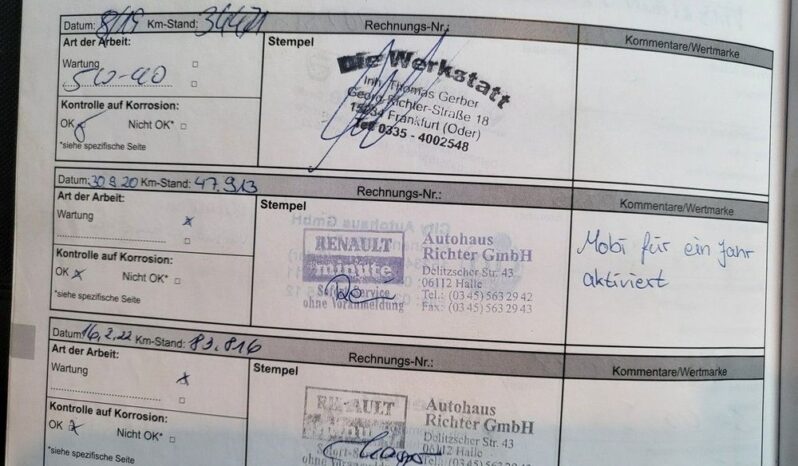 Datum: 8/19 Km-Stand: 34471 Rechnungs-Nr.: Kommentare/Wertmarke
Art der Arbeit: Stempel
Wartung
5W-40
Kontrolle auf Korrosion:
OK Nicht OK*
*siehe spezifische Seite
Die Werkstatt
Inh. Thomas Gerber
Georg-Richter-Straße 18
15234 Frankfurt (Oder)
Tel. 0335 - 4002548
Datum: 30.9.20 Km-Stand: 47.913 Rechnungs-Nr.: Kommentare/Wertmarke
Art der Arbeit: Stempel
Wartung x
Kontrolle auf Korrosion:
OK x Nicht OK*
*siehe spezifische Seite
RENAULT
minute
Sofort-Service
ohne Voranmeldung
Autohaus
Richter GmbH
Delitzscher Str. 43
06112 Halle
Tel.: (03 45) 563 29 42
Fax: (03 45) 563 29 43
Mobi für ein Jahr
aktiviert
Datum: 16.2.22 Km-Stand: 83.816 Rechnungs-Nr.: Kommentare/Wertmarke
Art der Arbeit: Stempel
Wartung x
Kontrolle auf Korrosion:
OK x Nicht OK*
*siehe spezifische Seite
RENAULT
minute
Sofort-Service
ohne Voranmeldung
Autohaus
Richter GmbH
Delitzscher Str. 43
06112 Halle